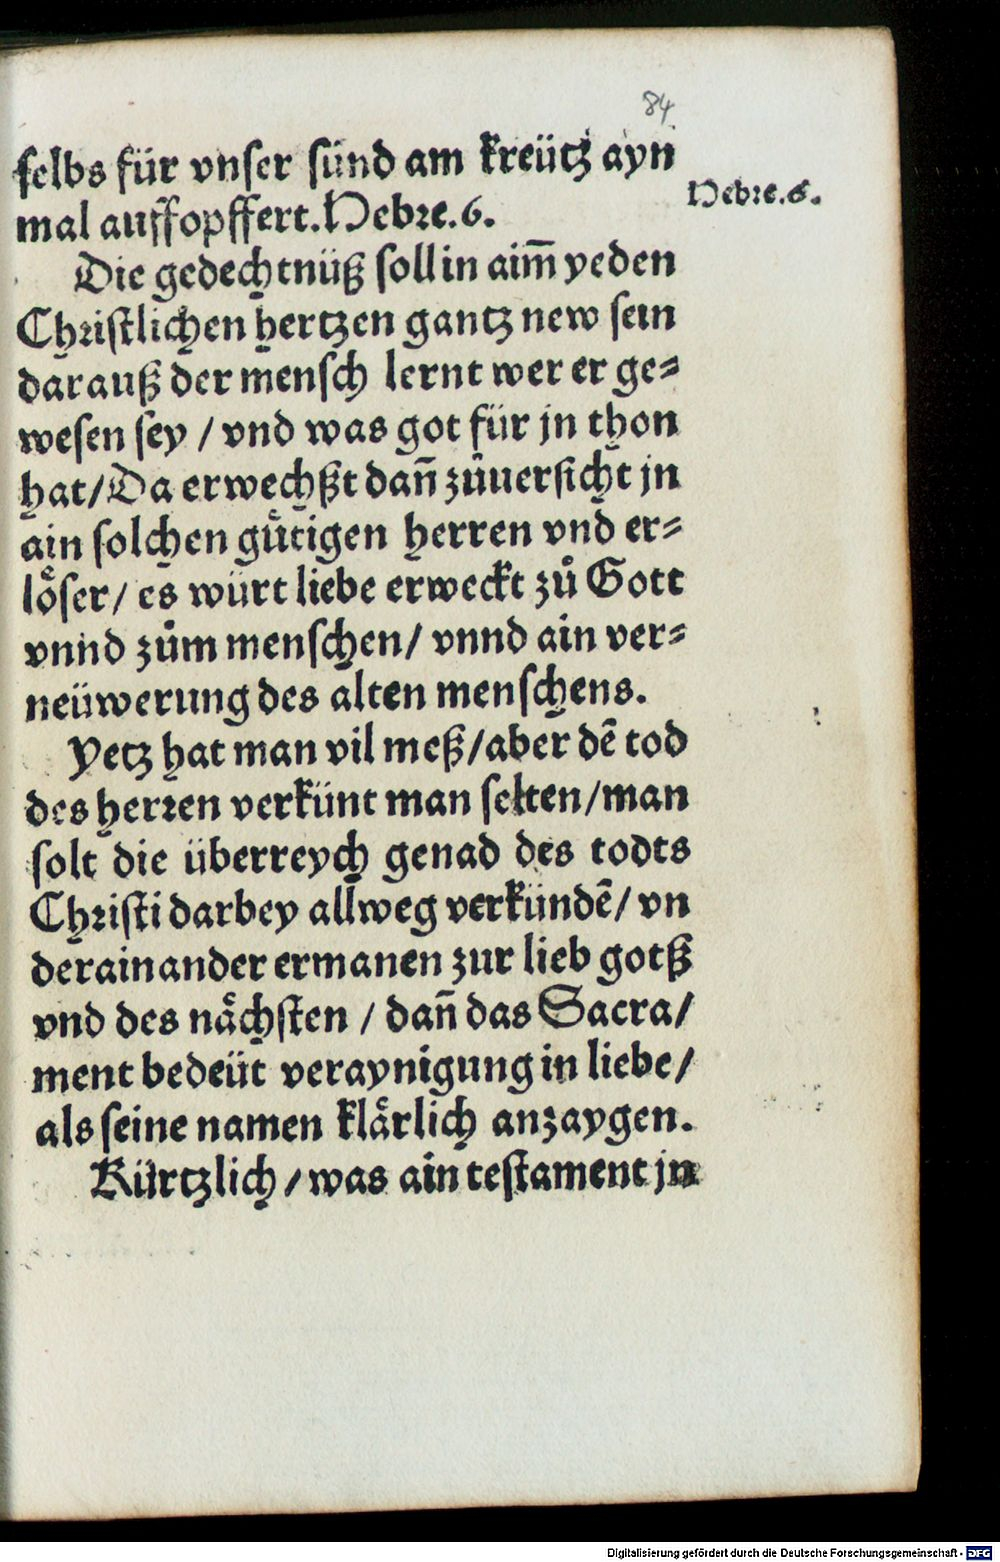 84
selbs für vnser sünd am kreütz ayn
mal auffopffert. Hebre. 6.
Hebre. 6.
Die gedechtnüß soll in aim̅ yeden
Christlichen hertzen gantz new sein
darauß der mensch lernt wer er ge=
wesen sey / vnd was got für jn thon
hat / Da erwechßt dan̅ zůuersicht jn
ain solchen gůtigen herren vnd er=
löser / es würt liebe erweckt zů Gott
vnnd zům menschen / vnnd ain ver=
neüwerung des alten menschens.
Yetz hat man vil meß / aber dē tod
des herren verkünt man selten / man
solt die überreych genad des todts
Christi darbey allweg verkündē / vn
derainander ermanen zur lieb gotß
vnd des nächsten / dan̅ das Sacra /
ment bedeüt veraynigung in liebe /
als seine namen klärlich anzaygen.
Kürtzlich / was ain testament jn
Digitalisierung gefördert durch die Deutsche Forschungsgemeinschaft - DFG